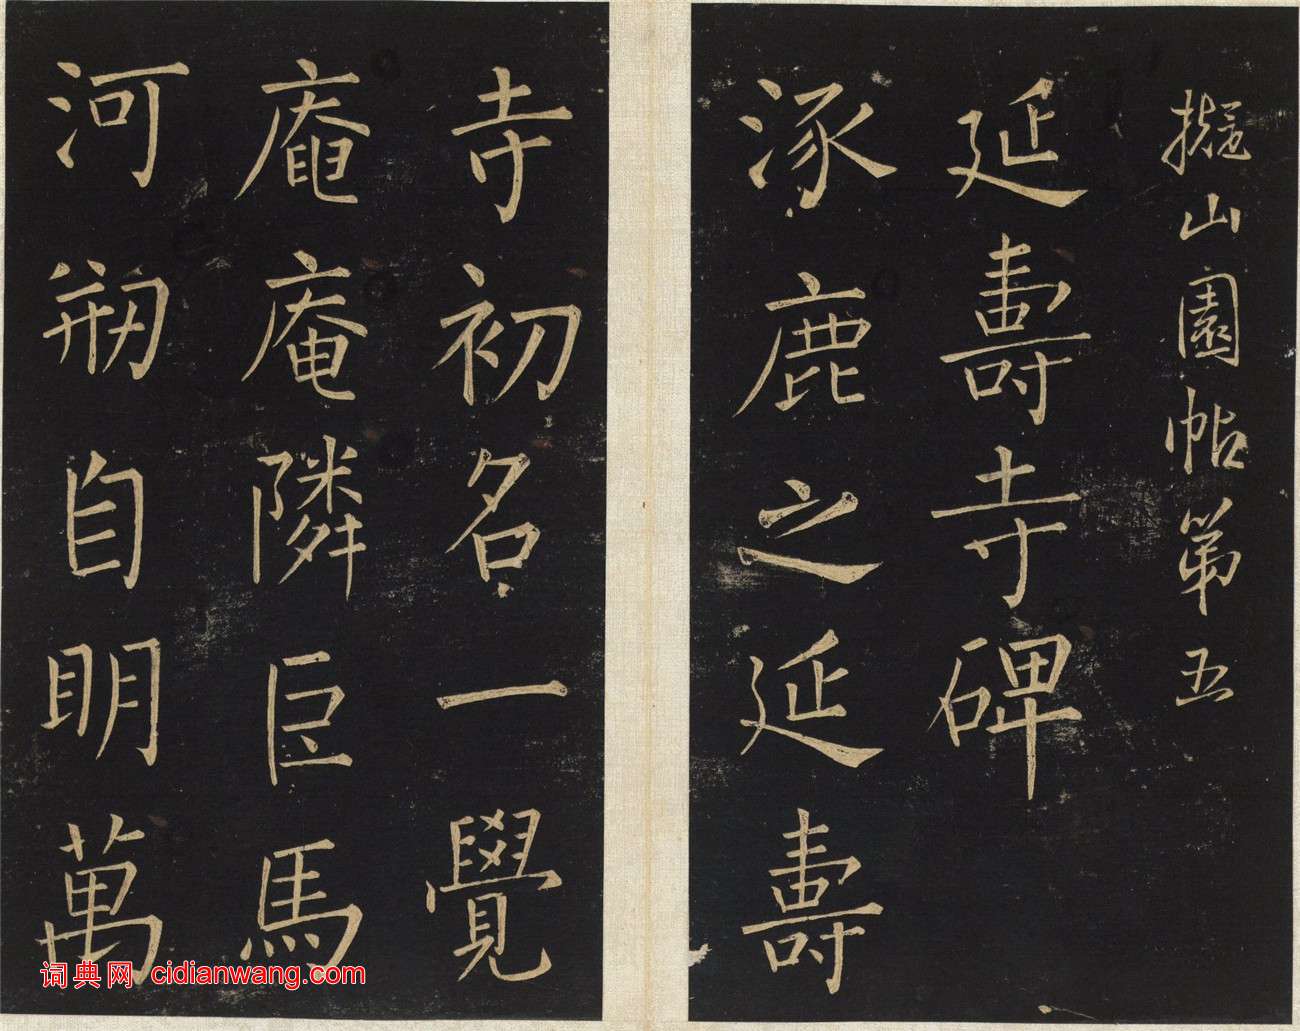 擬山園帖第五
延壽寺碑
涿鹿之延壽
寺初名一覺
庵庵隣臣馬
河剏自明萬
词典网 cidianwang.com